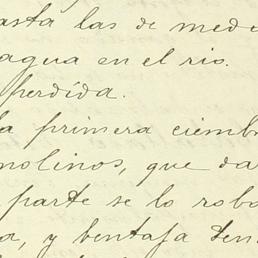 asta las de med
agua en el rio.
perdída.
a primera ciemb
molinos, que da
parte se lo roba
a, y bentaja ten